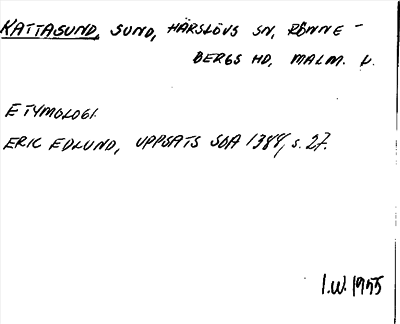 KATTASUND, SUND, HÄRSLÖVS SN, RÖNNE-
BERGS HD, MALM. L.
ETYMOLOGI.
ERIC EDLUND, UPPSATS SOA 1384, s. 27.
I.W. 1955